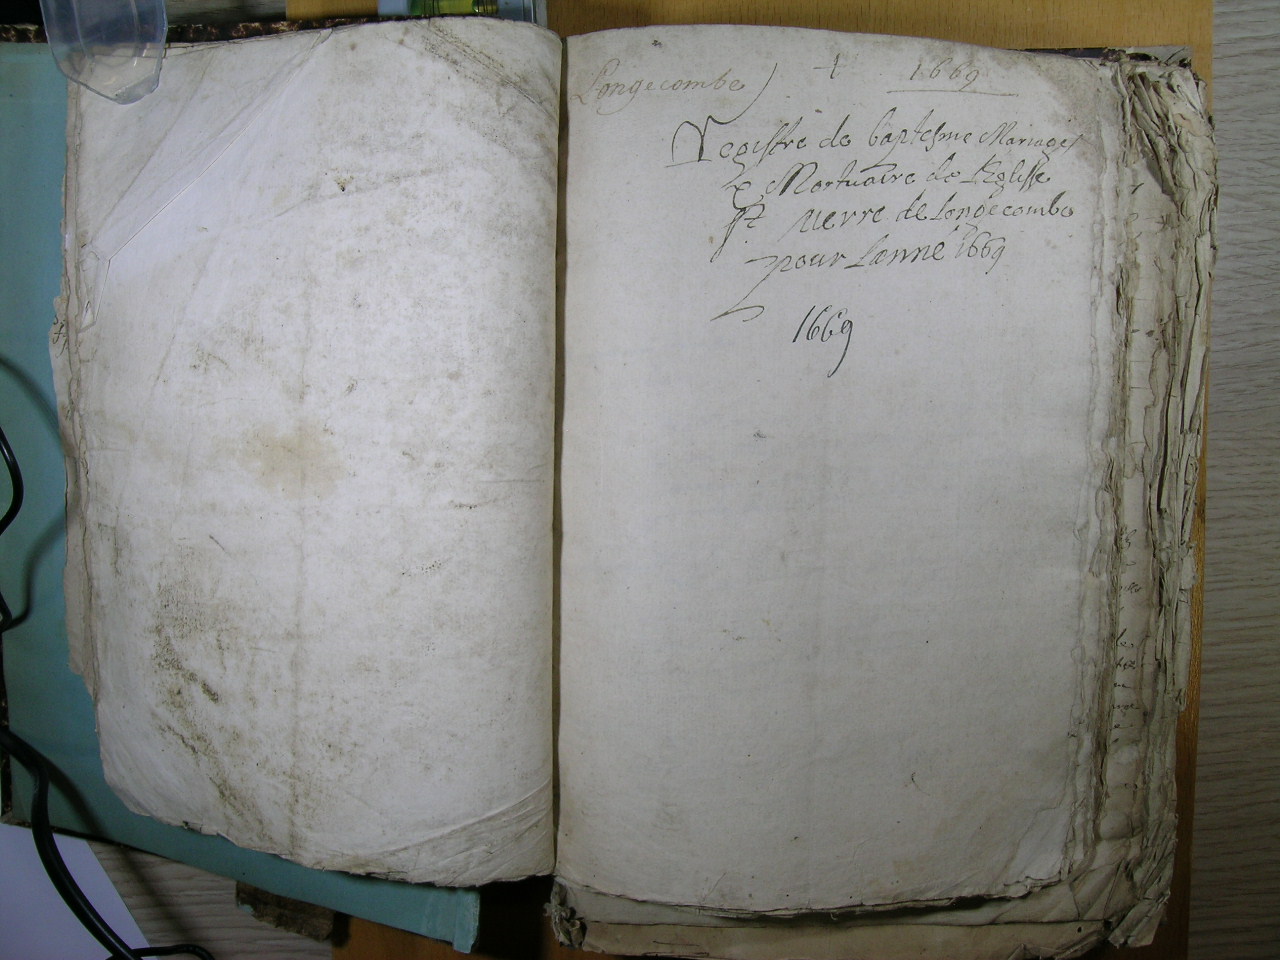 Longecombe) + 1669
Registre de baptesme Mariages
& Mortuaire de L'Eglisse
St pierre de Longecombe
pour Lanné 1669
1669